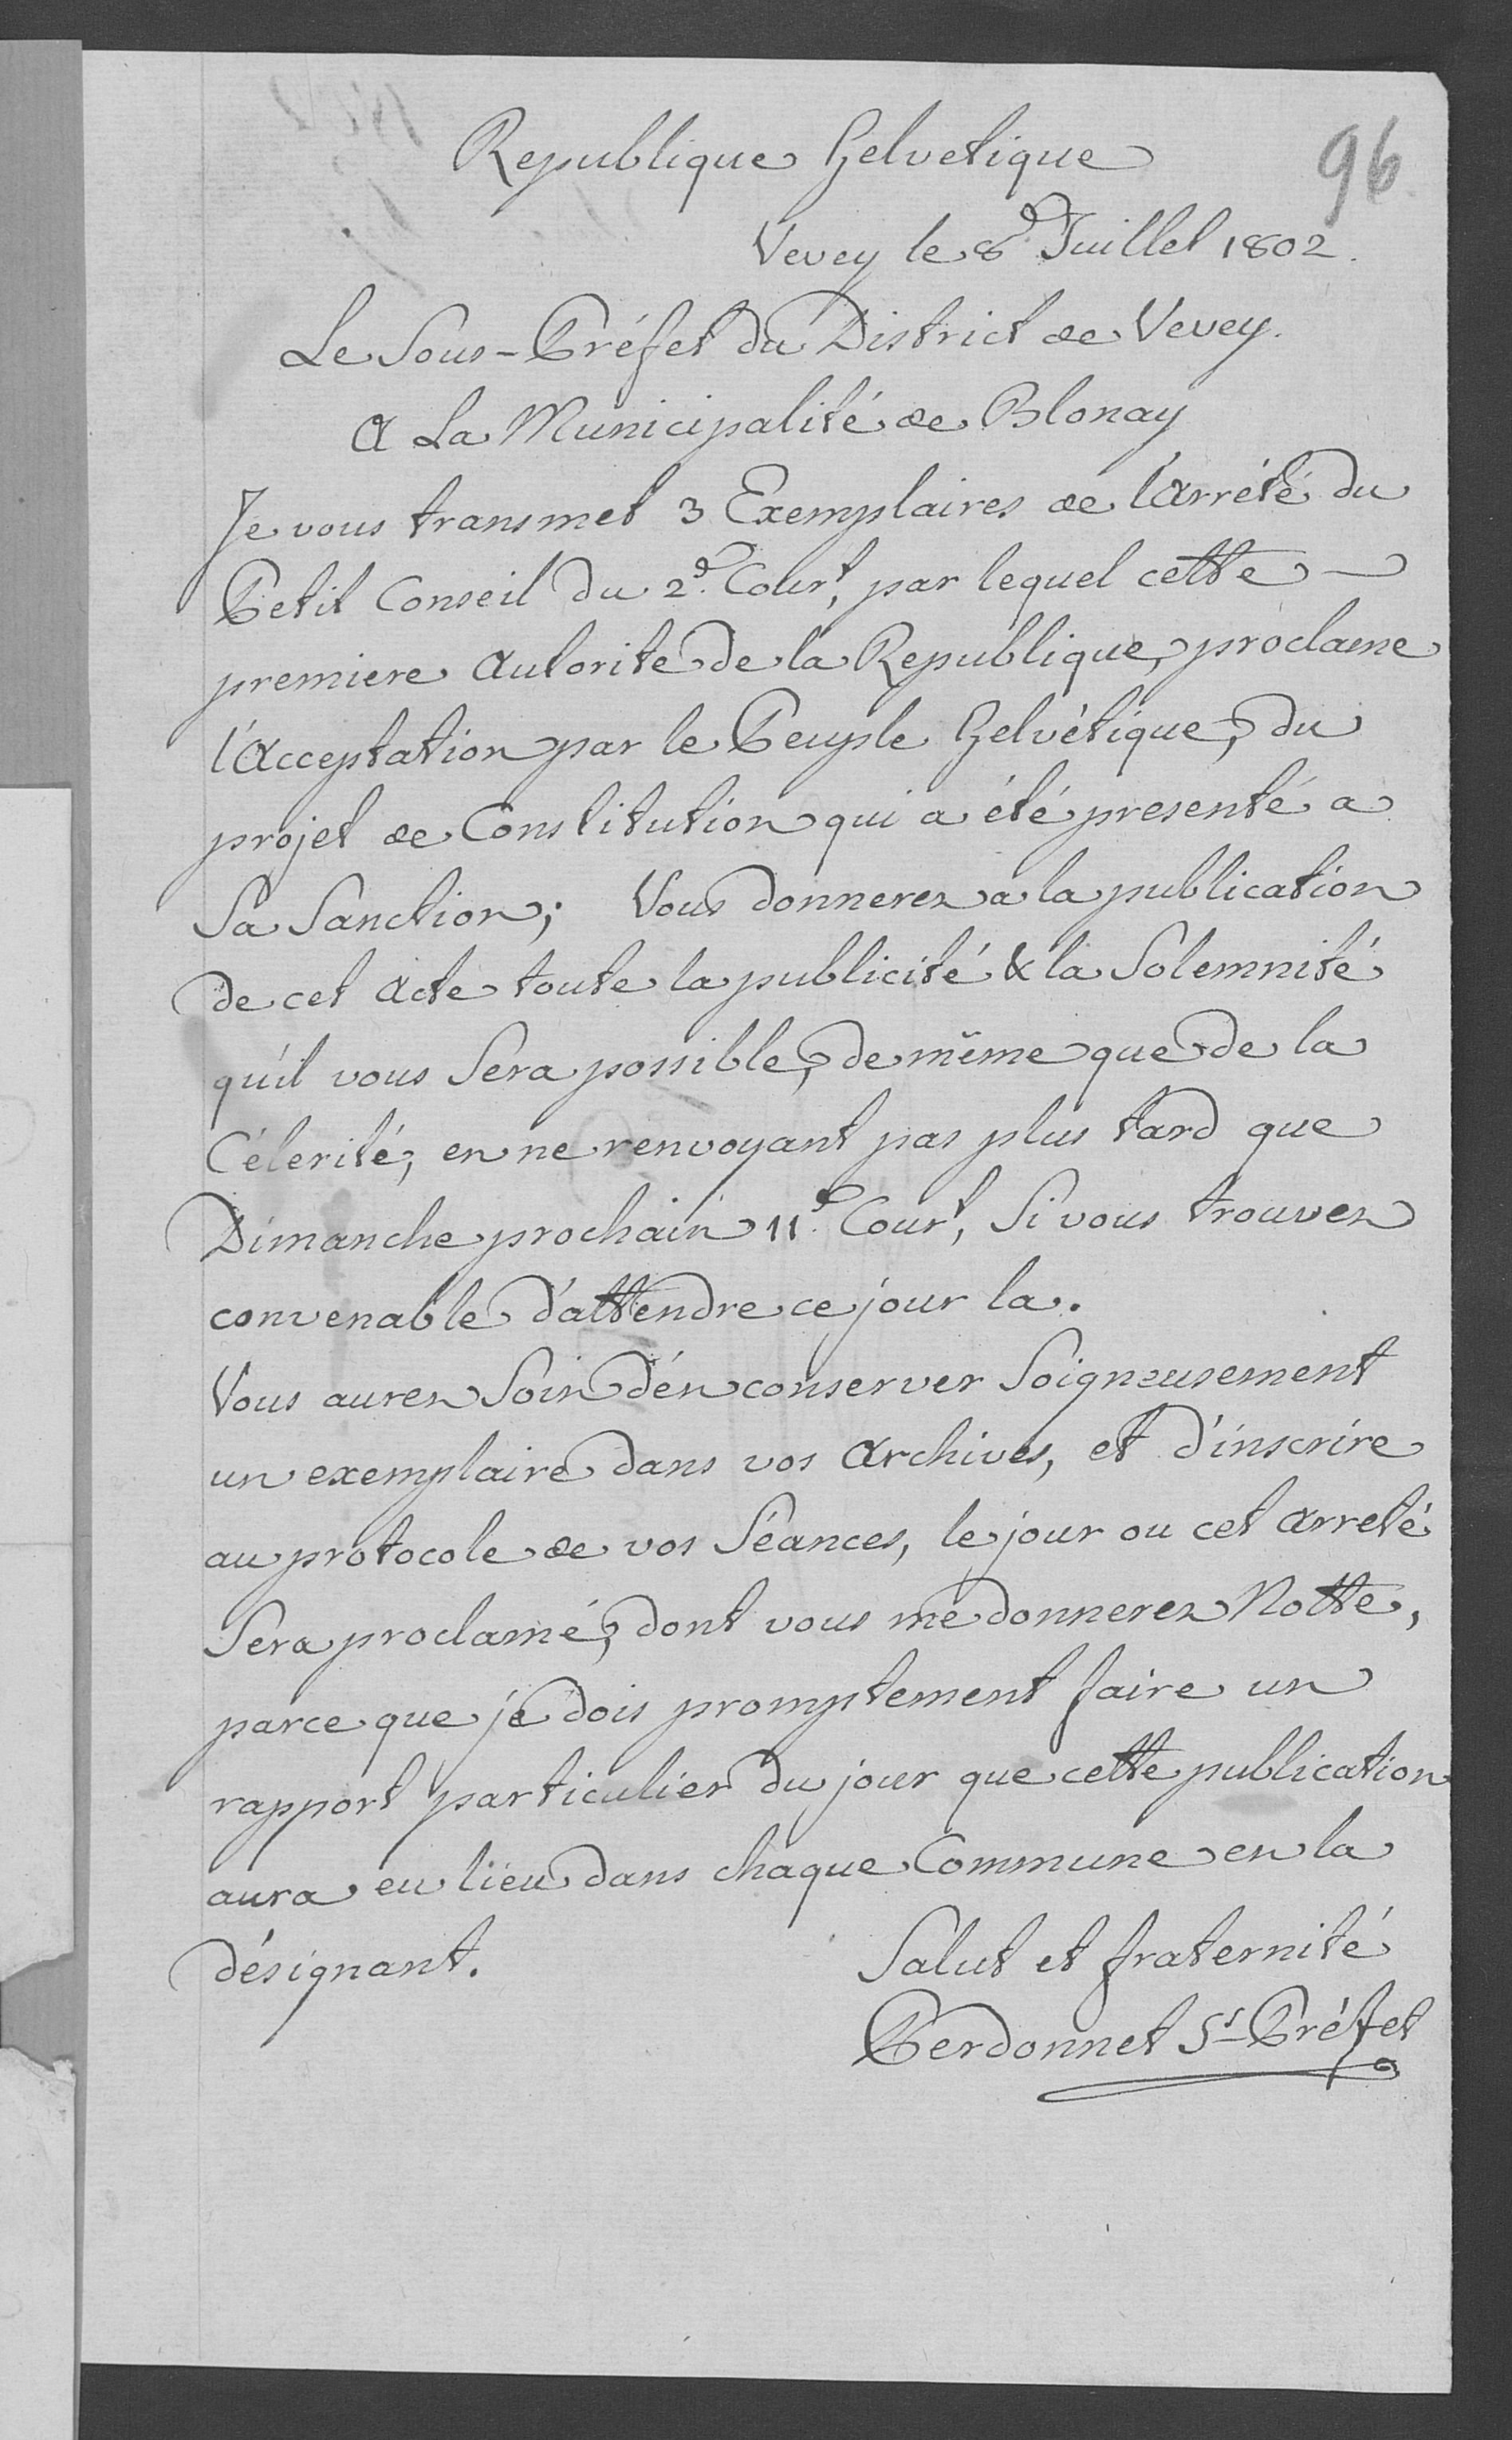 96
Republique Helvetique
Vevey le 8.e Juillet 1802.
Le Sous-Préfet du District de Vevey.
A La Municipalité de Blonay
Je vous transmet 3 Exemplaires de l'Arrété du
Petit Conseil du 2.e Cour.t, par lequel cette —
premiere Autorite de la Republique, proclame
l'Acceptation par le Peuple Helvétique, du
projet de Constitution qui a été presenté a
Sa Sanction; Vous donnerez a la publication
de cet Acte toute la publicité & la Solemnité
qu'il vous Sera possible, de même que de la
Célerité, en ne renvoyant pas plus tard que
Dimanche prochain 11.e Cour.t, Si vous trouvez
convenable d'attendre ce jour la.
Vous aurez Soin d'én conserver Soigneusement
un exemplaire dans vos Archives, et d'inscrire
au protocole de vos Séances, le jour ou cet Arreté
Sera proclamé, dont vous me donnerez Notte,
parce que je dois promptement faire un
rapport particulier du jour que cette publication
aura eu lieu dans chaque Commune en la
désignant.
Salut et fraternité
Perdonnet Ss-Préfet